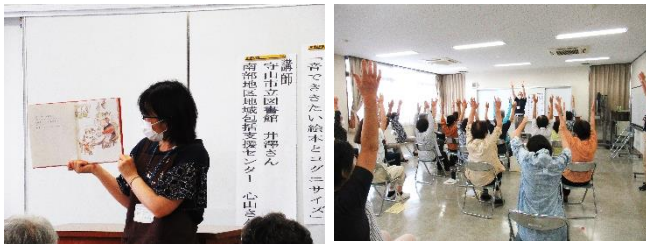 「音できたい絵本とコグニサイズ」
講師
守山市立図書館 井澤さん
南部地区地域包括支援センター 心山さん